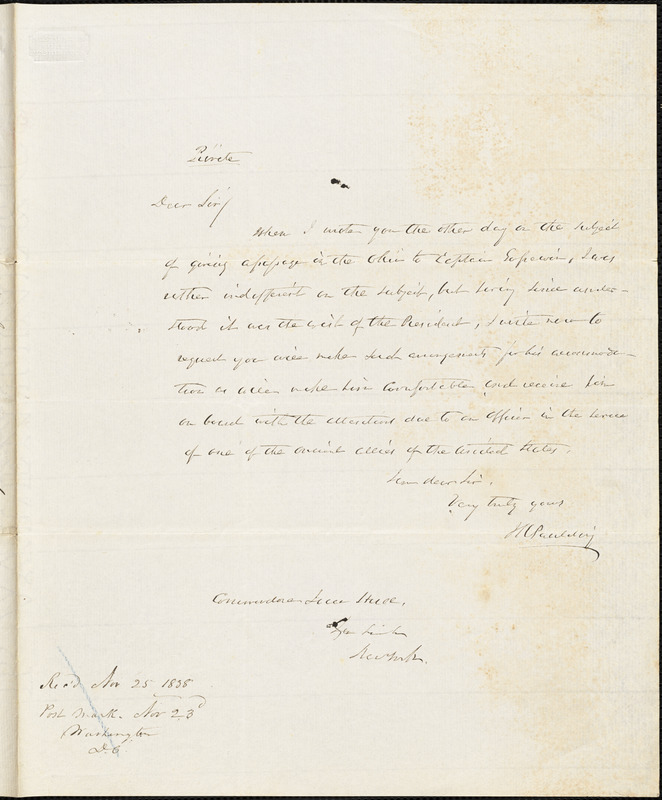 Private
Dear Sir/
When I wrote you the other day on the subject
of giving a passage in the Ohio to Captain, I was
rather indifferent on the subject, but having since under-
stood it was the wish of the President, I write now to
request you will make such arrangements for his accommoda-
tion as will make him comfortable, and receive him
on board with the attentions due to an officer in the service
of one of the ancient allies of the United States.
I am dear Sir.
Very truly yours
JK Paulding
Commodore Isaac Hull.
New York.
Rec'd Nov 25 1838
Post Mark. Nov 23d
Washington
D.C.